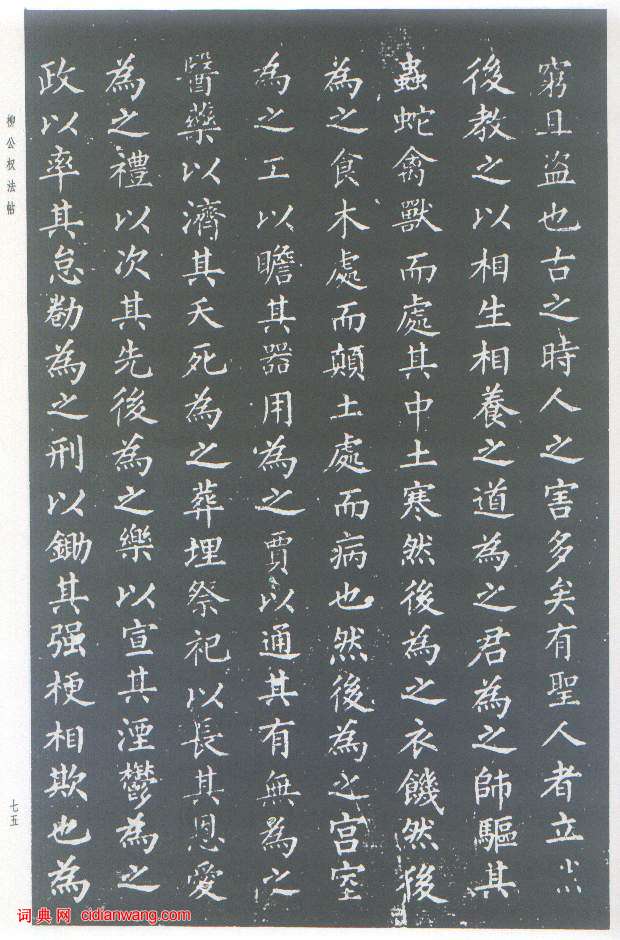 窮且盜也古之時人之害多矣有聖人者立
後教之以相生相養之道為之君為之師驅其
蟲蛇禽獸而處其中土寒然後為之衣饑然後
為之食木處而顛土處而病也然後為之宮室
為之工以瞻其器用為之賈以通其有無為之
醫藥以濟其夭死為之葬埋祭祀以長其恩愛
為之禮以次其先後為之樂以宣其湮鬱為之
政以率其怠勌為之刑以鋤其强梗相欺也為
柳公权法帖
七五
词典网 cidianwang.com